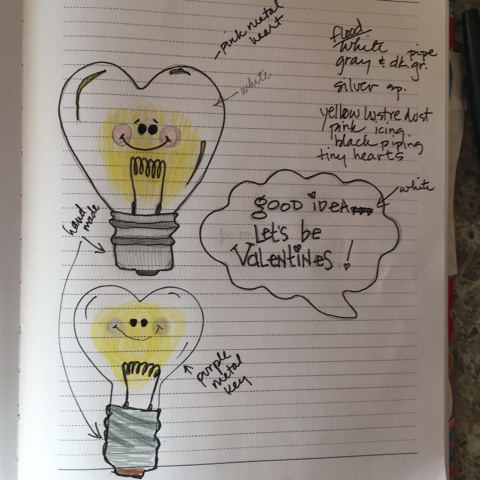 pink metal
heart
white
flood
white pipe
gray & dk. gr.
silver sp.
yellow lustre dust
pink icing
black piping
tiny hearts
white
GOOD iDEA
Let's be
VALENTINES!
hand
made
purple
metal
key